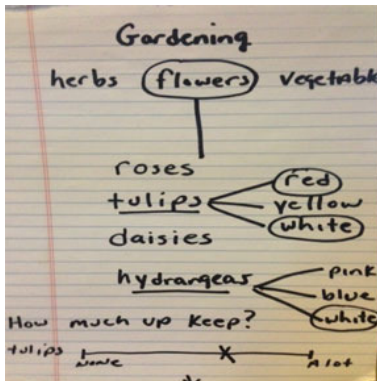 Gardening
herbs flowers vegetable
roses
tulips
red
yellow
white
daisies
hydrangeas
pink
blue
white
How much up keep?
tulips
None
A lot